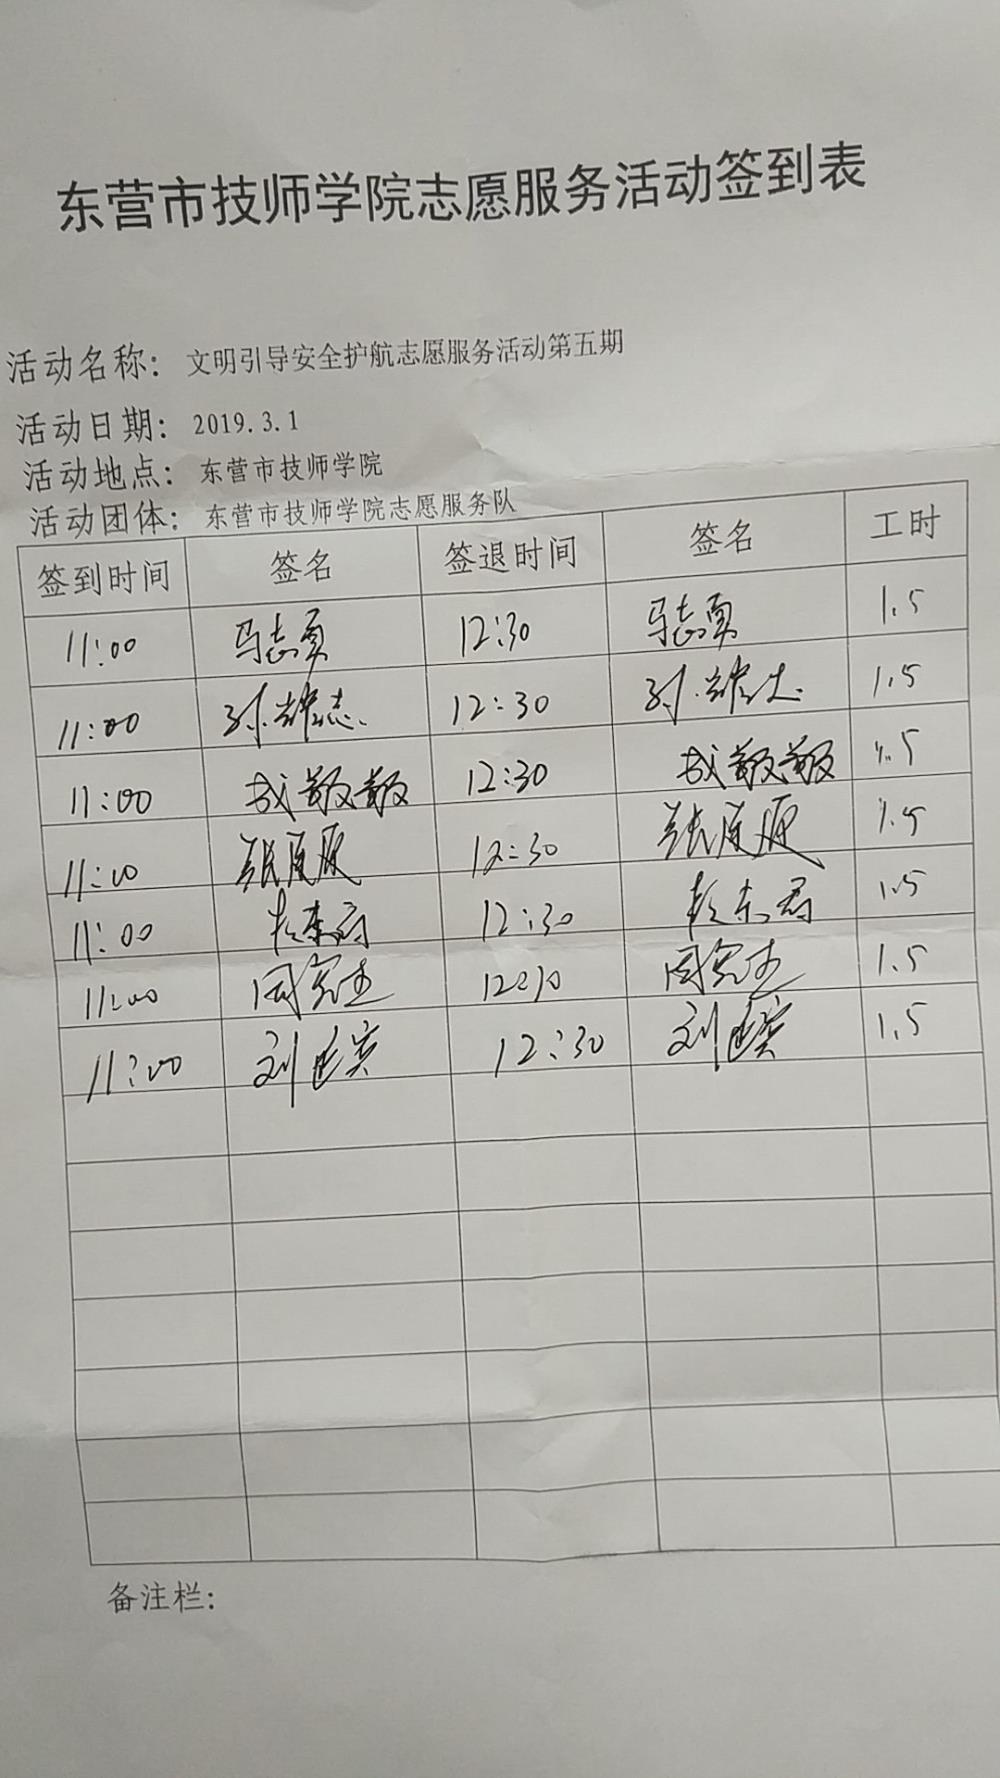 东营市技师学院志愿服务活动签到表
活动名称：文明引导安全护航志愿服务活动第五期
活动日期：2019.3.1
活动地点：东营市技师学院
活动团体：东营市技师学院志愿服务队
签到时间 签名 签退时间 签名 工时
11:00 马志勇 12:30 马志勇 1.5
11:00 12:30 1.5
11:00 成敏敏 12:30 成敏敏 1.5
11:00 张原原 12:30 张原原 1.5
11:00 12:30 1.5
11:00 周 12:30 周 1.5
11:00 刘 12:30 刘 1.5
备注栏：